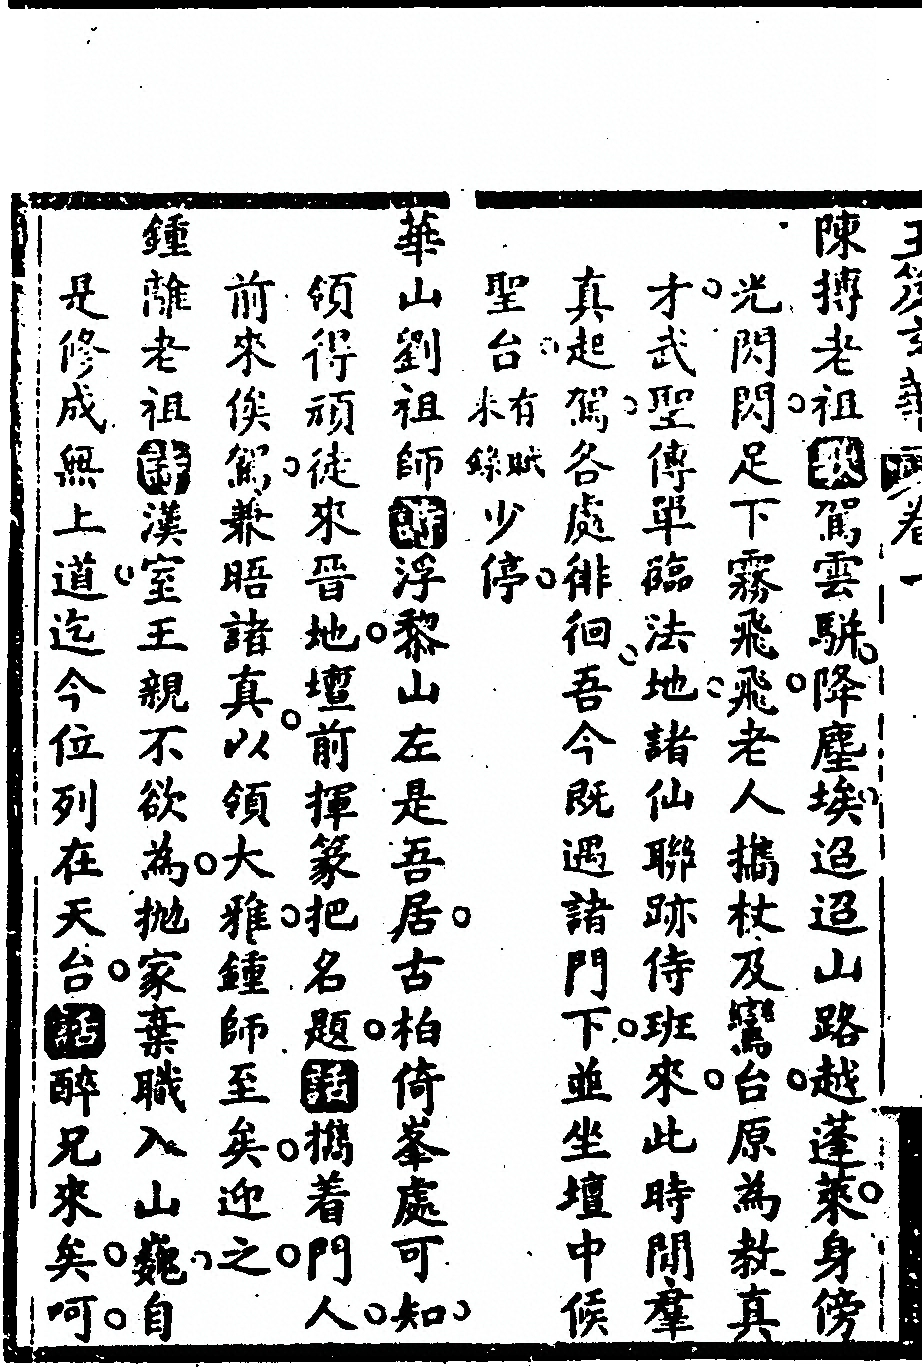 卷一
陳摶老祖歌駕雲駢降塵埃迢迢山路越蓬萊身傍
光閃閃足下霧飛飛老人攜杖及鸞台原為救真
才武聖傳單臨法地諸仙聯跡侍班來此時閒羣
真起駕各處徘徊吾今既遇諸門下並坐壇中候
聖台有賦未錄少停
華山劉祖師詩浮黎山左是吾居古柏倚峯處可知
領得頑徒來晉地壇前揮篆把名題話攜着門人
前來俟駕兼晤諸真以領大雅鍾師至矣迎之
鍾離老祖詩漢室王親不欲為拋家棄職入山巍自
是修成無上道迄今位列在天台話醉兄來矣呵